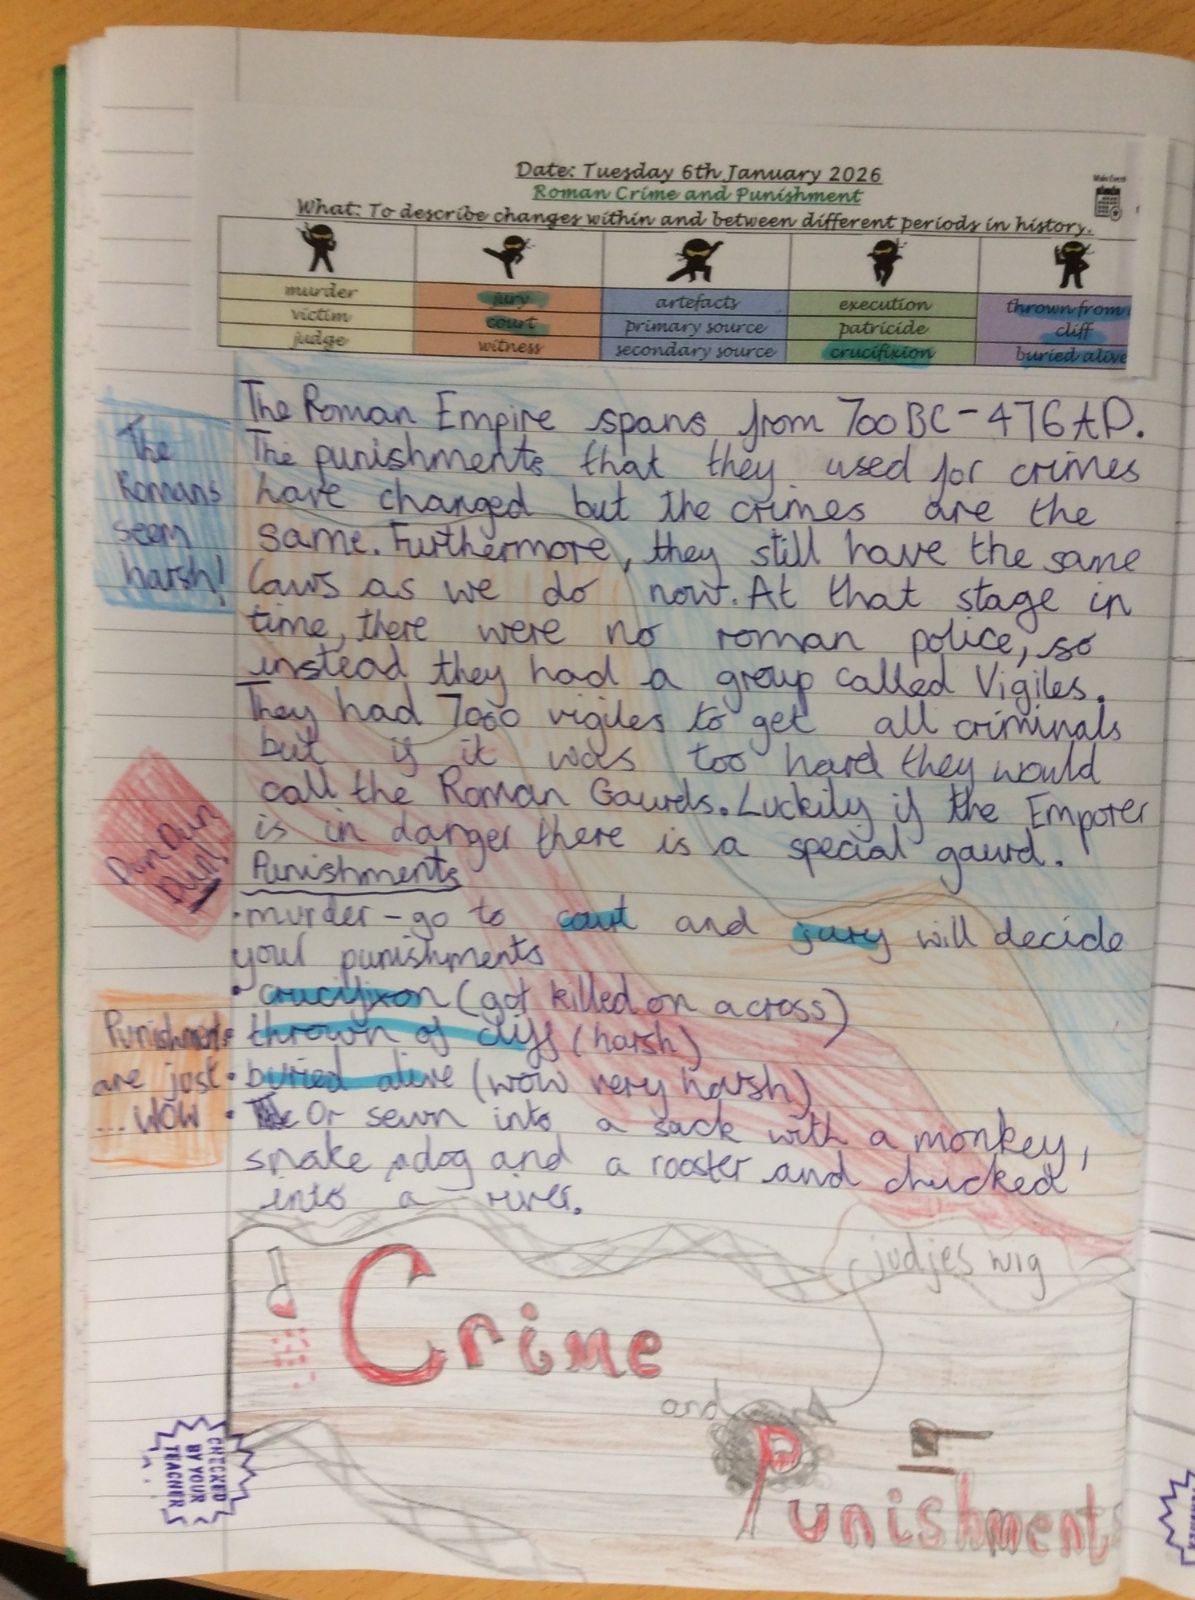 Date: Tuesday 6th January 2026
Roman Crime and Punishment
What: To describe changes within and between different periods in history.
murder jury artefacts execution thrown from
victim court primary source patricide cliff
judge witness secondary source crucifixion buried alive
The Roman Empire spans from 700BC-476AD.
The punishments that they used for crimes
have changed but the crimes are the
same. Furthermore, they still have the same
laws as we do now. At that stage in
time, there were no roman police, so
instead they had a group called Vigiles.
They had 7000 vigiles to get all criminals
but if it was too hard they would
call the Roman Gaurds. Luckily if the Emporer
is in danger there is a special gaurd.
The
Romans
seem
harsh!
Dun Dun
Dun!
Punishments
•murder-go to court and jury will decide
your punishments
•crucifixon (got killed on a cross)
•thrown of cliff (harsh)
•buried alive (wow very harsh)
•Or sewn into a sack with a monkey,
snake, a dog and a rooster and chucked
into a river.
Punishments
are just
... wow
judjes wig
Crime
and
Punishments
CHECKED
BY YOUR
TEACHER